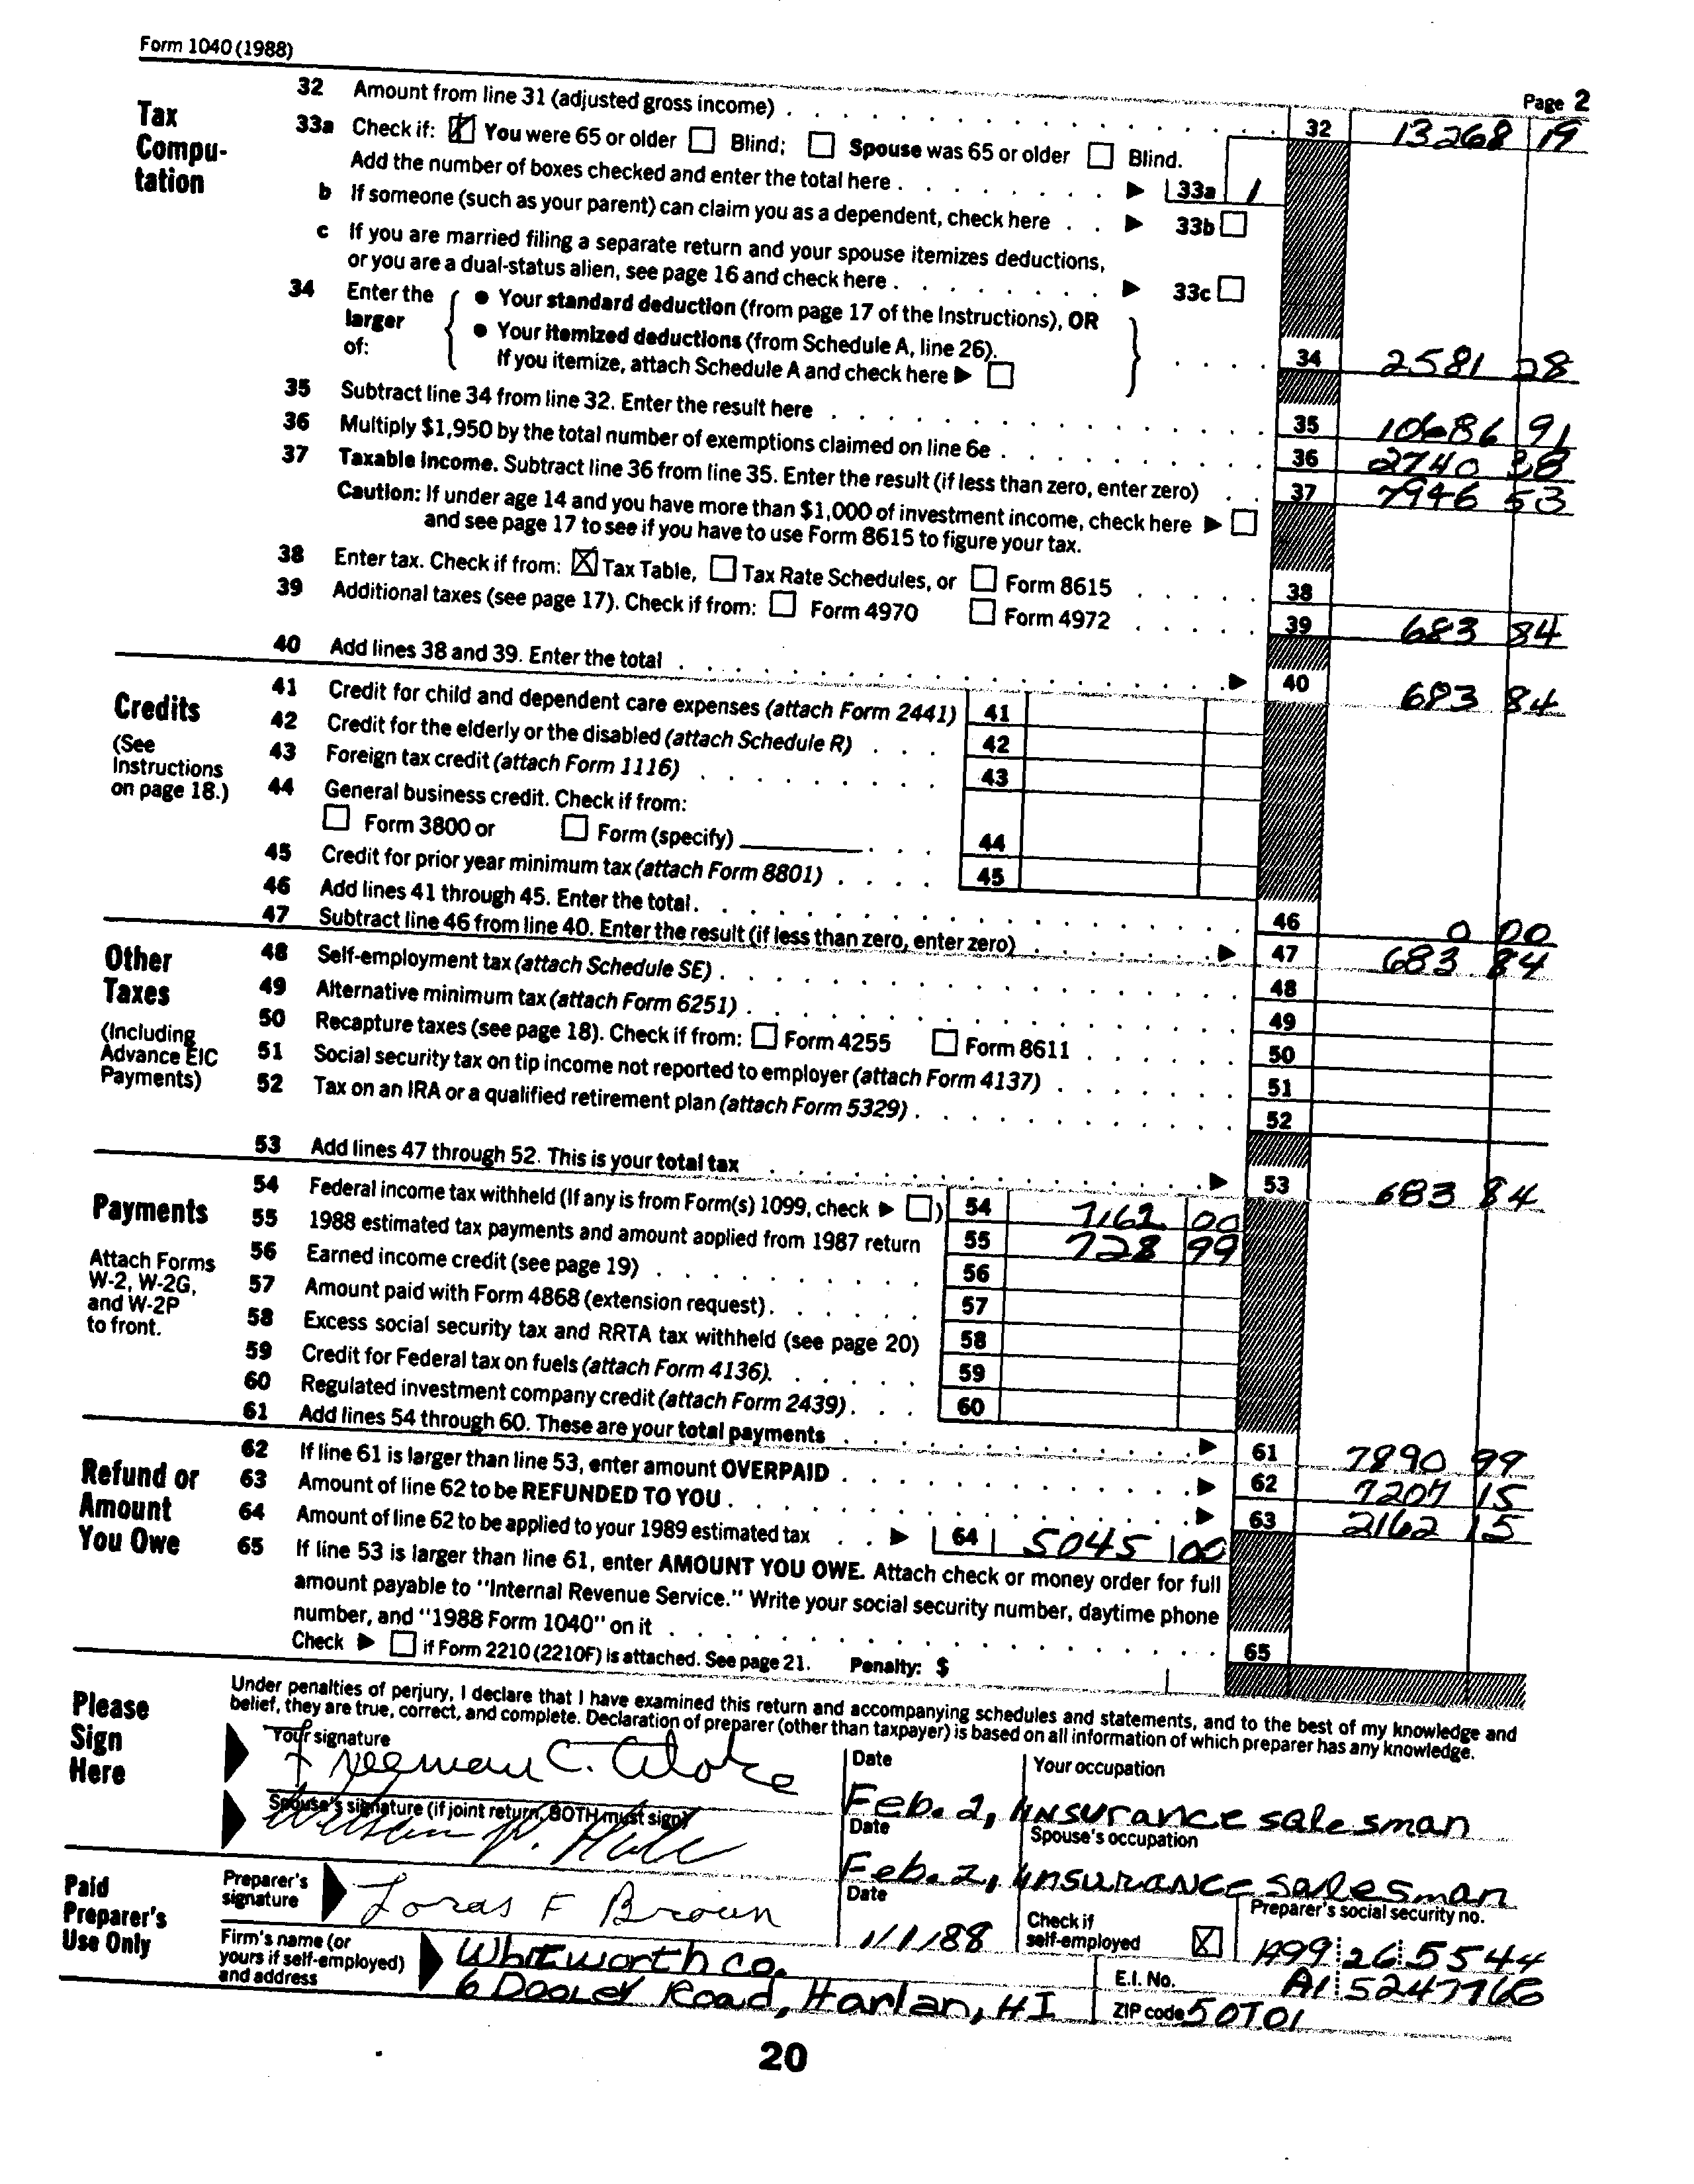 Form 1040 (1988)
Page 2
Tax Compu-tation
32 Amount from line 31 (adjusted gross income) . . . 32 13268 19
33a Check if: ☒ You were 65 or older ☐ Blind; ☐ Spouse was 65 or older ☐ Blind.
Add the number of boxes checked and enter the total here . . . ▶ 33a 1
b If someone (such as your parent) can claim you as a dependent, check here . . ▶ 33b ☐
c If you are married filing a separate return and your spouse itemizes deductions,
or you are a dual-status alien, see page 16 and check here . . . ▶ 33c ☐
34 Enter the larger of:
● Your standard deduction (from page 17 of the Instructions), OR
● Your itemized deductions (from Schedule A, line 26).
If you itemize, attach Schedule A and check here ▶ ☐ . . . 34 2581 28
35 Subtract line 34 from line 32. Enter the result here . . . 35 10686 91
36 Multiply $1,950 by the total number of exemptions claimed on line 6e . . . 36 2740 38
37 Taxable income. Subtract line 36 from line 35. Enter the result (if less than zero, enter zero) . . 37 7946 53
Caution: If under age 14 and you have more than $1,000 of investment income, check here ▶ ☐
and see page 17 to see if you have to use Form 8615 to figure your tax.
38 Enter tax. Check if from: ☒ Tax Table, ☐ Tax Rate Schedules, or ☐ Form 8615 . . . 38
39 Additional taxes (see page 17). Check if from: ☐ Form 4970 ☐ Form 4972 . . . 39 683 84
40 Add lines 38 and 39. Enter the total . . . ▶ 40 683 84
Credits
(See Instructions on page 18.)
41 Credit for child and dependent care expenses (attach Form 2441) 41
42 Credit for the elderly or the disabled (attach Schedule R) . . . 42
43 Foreign tax credit (attach Form 1116) . . . 43
44 General business credit. Check if from:
☐ Form 3800 or ☐ Form (specify) ______ . . . 44
45 Credit for prior year minimum tax (attach Form 8801) . . . 45
46 Add lines 41 through 45. Enter the total . . . 46 0 00
47 Subtract line 46 from line 40. Enter the result (if less than zero, enter zero) . . . ▶ 47 683 84
Other Taxes
(Including Advance EIC Payments)
48 Self-employment tax (attach Schedule SE) . . . 48
49 Alternative minimum tax (attach Form 6251) . . . 49
50 Recapture taxes (see page 18). Check if from: ☐ Form 4255 ☐ Form 8611 . . . 50
51 Social security tax on tip income not reported to employer (attach Form 4137) . . . 51
52 Tax on an IRA or a qualified retirement plan (attach Form 5329) . . . 52
53 Add lines 47 through 52. This is your total tax . . . ▶ 53 683 84
Payments
Attach Forms W-2, W-2G, and W-2P to front.
54 Federal income tax withheld (If any is from Form(s) 1099, check ▶ ☐) 54 7162 00
55 1988 estimated tax payments and amount applied from 1987 return 55 728 99
56 Earned income credit (see page 19) . . . 56
57 Amount paid with Form 4868 (extension request) . . . 57
58 Excess social security tax and RRTA tax withheld (see page 20) 58
59 Credit for Federal tax on fuels (attach Form 4136) . . . 59
60 Regulated investment company credit (attach Form 2439) . . . 60
61 Add lines 54 through 60. These are your total payments . . . ▶ 61 7890 99
Refund or Amount You Owe
62 If line 61 is larger than line 53, enter amount OVERPAID . . . ▶ 62 7207 15
63 Amount of line 62 to be REFUNDED TO YOU . . . ▶ 63 2162 15
64 Amount of line 62 to be applied to your 1989 estimated tax . . ▶ 64 5045 00
65 If line 53 is larger than line 61, enter AMOUNT YOU OWE. Attach check or money order for full
amount payable to "Internal Revenue Service." Write your social security number, daytime phone
number, and "1988 Form 1040" on it . . . 65
Check ▶ ☐ if Form 2210 (2210F) is attached. See page 21. Penalty: $
Please Sign Here
Under penalties of perjury, I declare that I have examined this return and accompanying schedules and statements, and to the best of my knowledge and
belief, they are true, correct, and complete. Declaration of preparer (other than taxpayer) is based on all information of which preparer has any knowledge.
Your signature
Freeman C.
Date
Feb. 2,
Your occupation
Insurance salesman
Spouse's signature (if joint return, BOTH must sign)
Date
Feb. 2,
Spouse's occupation
Insurance salesman
Paid Preparer's Use Only
Preparer's signature
Loras F Brown
Date
1/1/88
Check if self-employed ☒
Preparer's social security no.
A99 26 5544
Firm's name (or yours if self-employed) and address
Whitworth co.
6 Dooley Road, Harlan, HI
E.I. No. A1 5247766
ZIP code 50T01
20